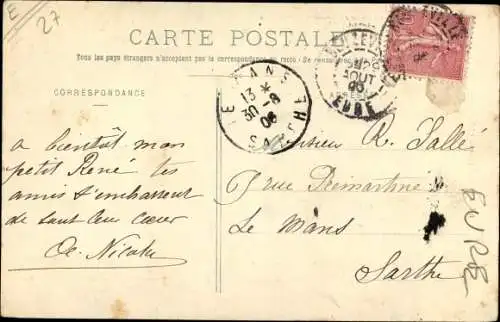 E
27
CARTE POSTALE
Tous les pays étrangers n'acceptent pas la correspondance au recto. (Se renseigner
CORRESPONDANCE
LE MANS
13 *
30-8
06
SARTHE
AOUT
06
EURE
a bientôt mon
petit René tes
amis t'embrassent
de tout leur cœur
Monsieur R. Sallé
7 rue Prémartine
Le Mans
Sarthe
EURE